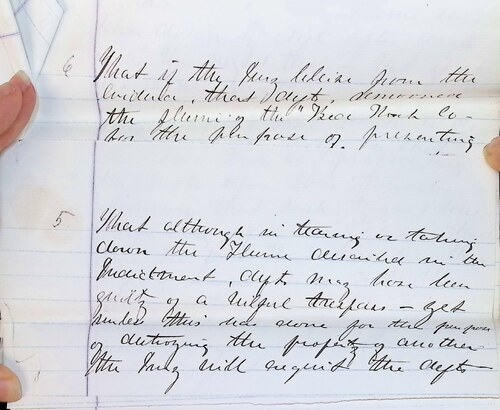 6 That if the Jury believe from the
evidence, that defts, removed
the flume of the "Bear Wash Co-
for the purpose of presenting
5 That although in tearing or taking
down the Flume described in the
Indictment, defts may have been
guilty of a wilful trespass - yet
unless this was done for the purpose
of destroying the property of another
the Jury will acquit the defts-